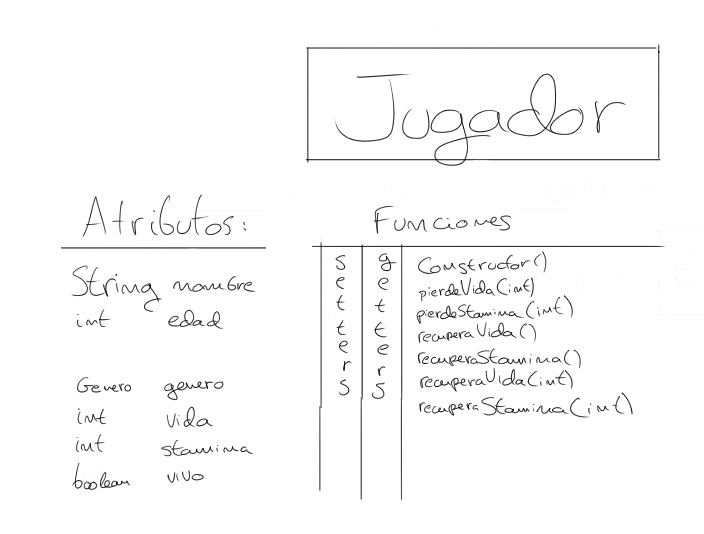 Jugador
Atributos:
String nombre
int edad
Genero genero
int vida
int stamina
boolean vivo
Funciones
setters
getters
Constructor()
pierdeVida(int)
pierdeStamina(int)
recuperaVida()
recuperaStamina()
recuperaVida(int)
recuperaStamina(int)